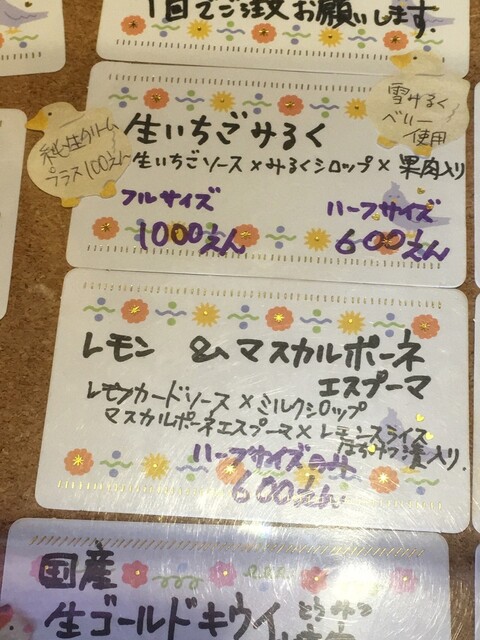 1日でご注文お願いします.
純生クリーム
プラス100えん
雪みるく
ベリー
使用
生いちごみるく
生いちごソース×みるくシロップ×果肉入り
フルサイズ
ハーフサイズ
1000えん
600えん
レモン &マスカルポーネ
エスプーマ
レモンカードソース×ミルクシロップ
マスカルポーネエスプーマ×レモンスライス
はちみつ漬入り.
ハーフサイズのみ
600えん
国産
生ゴールドキウイ